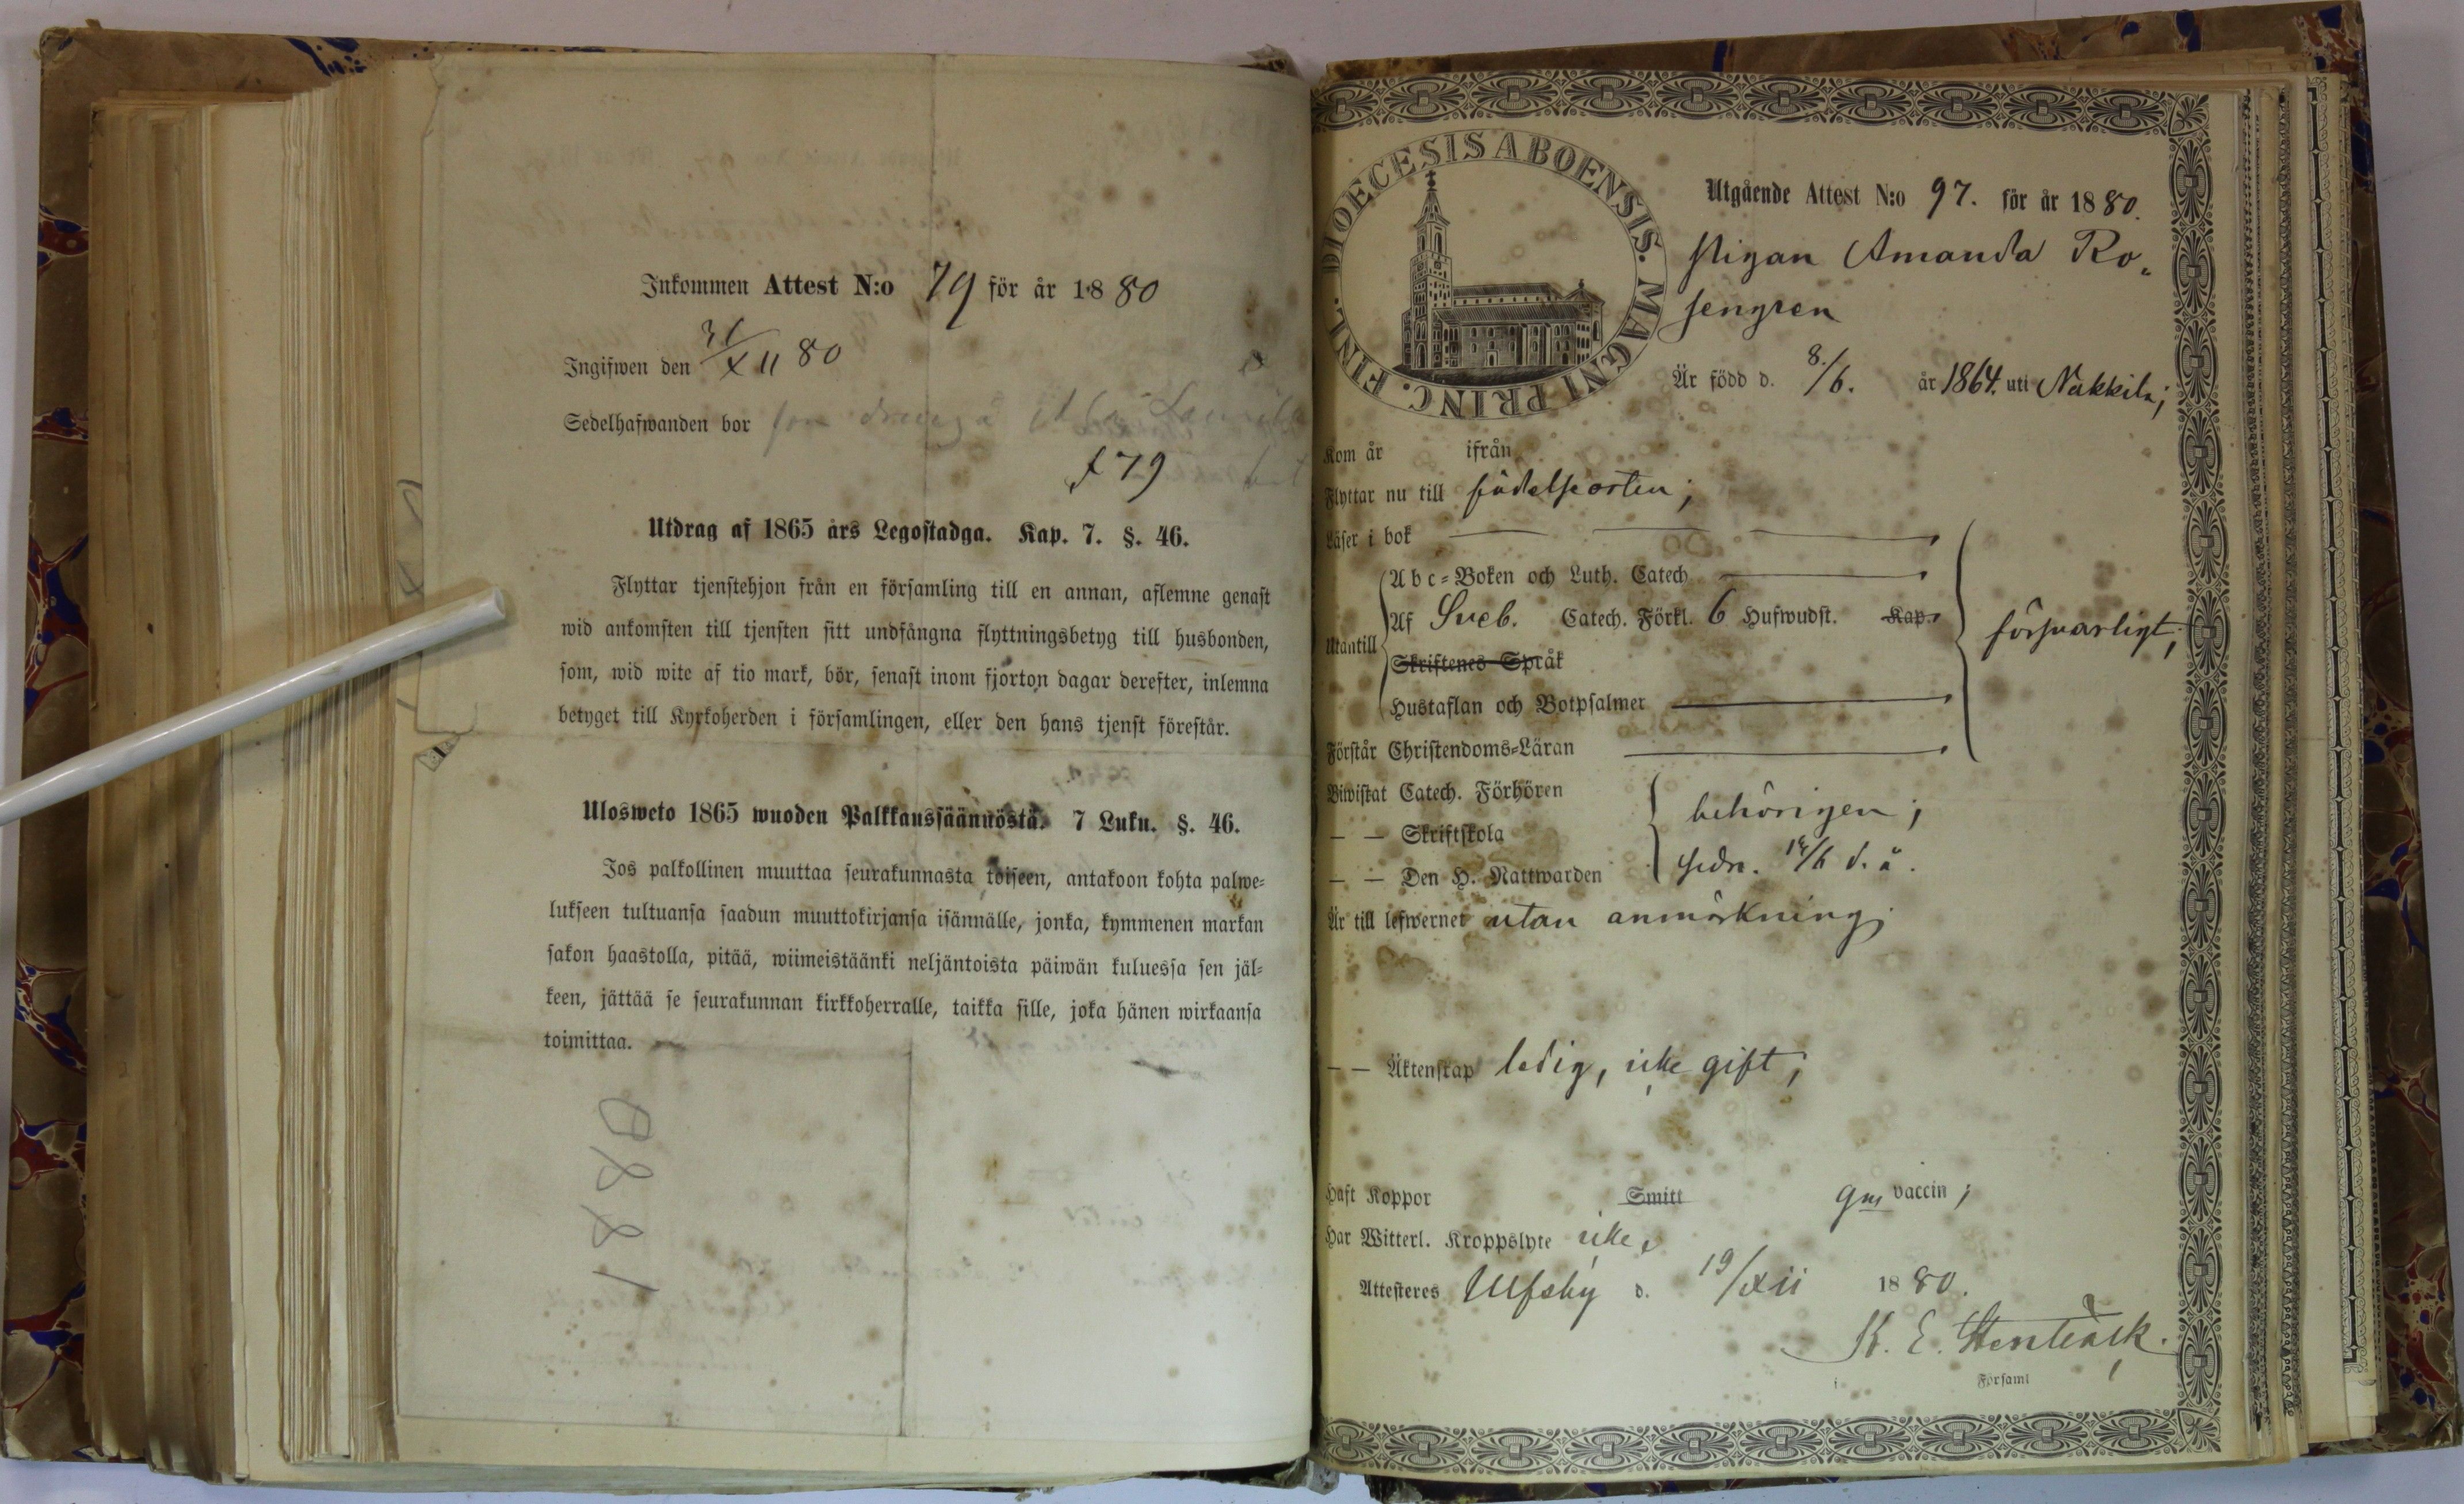 Inkommen Attest N:o 79 för år 1880
Ingifwen den 31/XII 80
Sedelhafwanden bor som
f 79
Utdrag af 1865 års Legostadga. Kap. 7. §. 46.
Flyttar tjenstehjon från en församling till en annan, aflemne genast
wid ankomsten till tjensten sitt undfångna flyttningsbetyg till husbonden,
som, wid wite af tio mark, bör, senast inom fjorton dagar derefter, inlemna
betyget till Kyrkoherden i församlingen, eller den hans tjenst förestår.
Ulosweto 1865 wuoden Palkkaussäännöstä. 7 Luku. §. 46.
Jos palkollinen muuttaa seurakunnasta toiseen, antakoon kohta palwe=
lukseen tultuansa saadun muuttokirjansa isännälle, jonka, kymmenen markan
sakon haastolla, pitää, wiimeistäänki neljäntoista päiwän kuluessa sen jäl=
keen, jättää se seurakunnan kirkkoherralle, taikka sille, joka hänen wirkaansa
toimittaa.
1880
DIOECESIS ABOENSIS. MAGNI PRINC. FINL.
Utgående Attest N:o 97. för år 1880.
Pigan Amanda Ro„
sengren
Är född d. 8./6. år 1864. uti Nakkila;
Kom år ifrån
Flyttar nu till födelseorten;
Läser i bok
Abc=Boken och Luth. Catech.
Utantill Af Sveb. Catech. Förkl. 6 Hufwudst. Kap.
försvarligt;
Skriftenes Språk
Hustaflan och Botpsalmer
Förstår Christendoms=Läran
Biwistat Catech. Förhören
behörigen;
— — Skriftskola
— — Den H. Nattwarden sedn. /6 d. å.
Är till lefwernet utan anmärkning;
— — Äktenskap ledig, icke gift;
Haft Koppor Smitt gm vaccin;
Har Witterl. Kroppslyte icke,
Attesteres Ulfsby d. 19/XII 1880.
K. E. Stenbäck.
i Församl